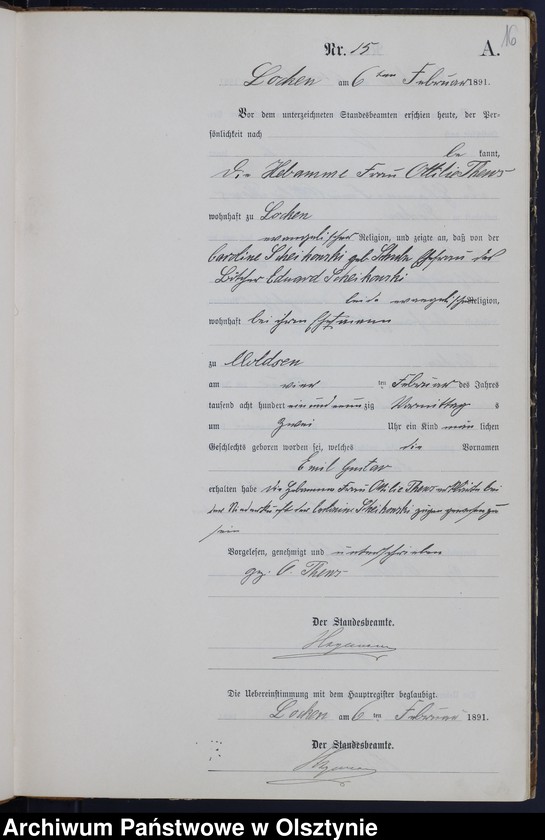 16
Nr. 15 A.
Locken am 6 ten Februar 1891.
Vor dem unterzeichneten Standesbeamten erschien heute, der Per-
sönlichkeit nach
be kannt,
die Hebamme Frau Ottilie Thews
wohnhaft zu Locken
evangelischer Religion, und zeigte an, daß von der
Caroline Scheikowski geb. Schulz Ehefrau des
Eduard Scheikowski
beide evangelischer Religion,
wohnhaft bei ihrem Ehemann
zu Moldsen
am vier ten Februar des Jahres
tausend acht hundert ein und neun zig Vormittag s
um zwei Uhr ein Kind männ lichen
Geschlechts geboren worden sei, welches die Vornamen
Emil Gustav
erhalten habe die Hebamme Frau Ottilie Thews erklärte bei
der Niederkunft der Scheikowski zugegen gewesen zu
sein
Vorgelesen, genehmigt und unterschrieben
gez. O. Thews
Der Standesbeamte.
Die Uebereinstimmung mit dem Hauptregister beglaubigt.
Locken am 6 ten Februar 1891.
Der Standesbeamte.
Archiwum Państwowe w Olsztynie